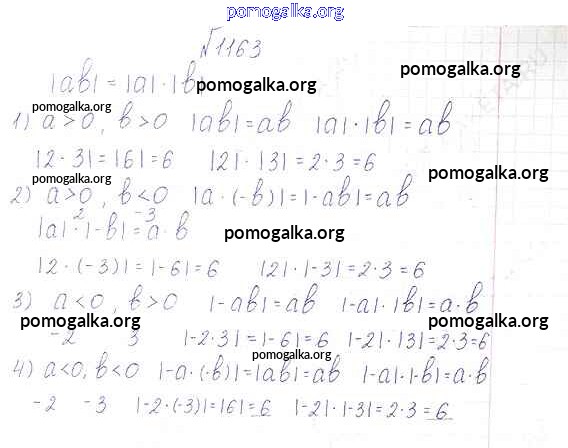 pomogalka.org
№1163
|ab| = |a| · |b| pomogalka.org
pomogalka.org
pomogalka.org
1) a > 0, b > 0 |ab| = ab |a| · |b| = ab
|2 · 3| = |6| = 6 |2| · |3| = 2 · 3 = 6
pomogalka.org pomogalka.org
2) a > 0, b < 0 |a · (-b)| = |-ab| = ab
2 -3
|a| · |-b| = a · b pomogalka.org
|2 · (-3)| = |-6| = 6 |2| · |-3| = 2 · 3 = 6
3) a < 0, b > 0 |-ab| = ab |-a| · |b| = a · b
pomogalka.org pomogalka.org
-2 3 |-2 · 3| = |-6| = 6 |-2| · |3| = 2 · 3 = 6
pomogalka.org
4) a < 0, b < 0 |-a · (-b)| = |ab| = ab |-a| · |-b| = a · b
-2 -3 |-2 · (-3)| = |6| = 6 |-2| · |-3| = 2 · 3 = 6